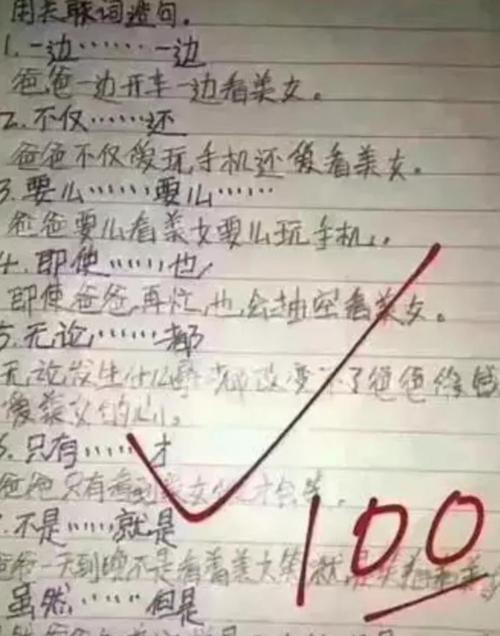 用关联词造句。
1.一边……一边
爸爸一边开车一边看美女。
2.不仅……还
爸爸不仅爱玩手机还爱看美女。
3.要么……要么……
爸爸要么看美女要么玩手机。
4.即使……也
即使爸爸再忙,也会抽空看美女。
5.无论……都
无论发生什么事都改变不了爸爸
爱美女的心。
6.只有……才
爸爸只有看到美女 才会笑。
7.不是……就是
爸爸一天到晚不是看着美女笑就是
虽然……但是
100